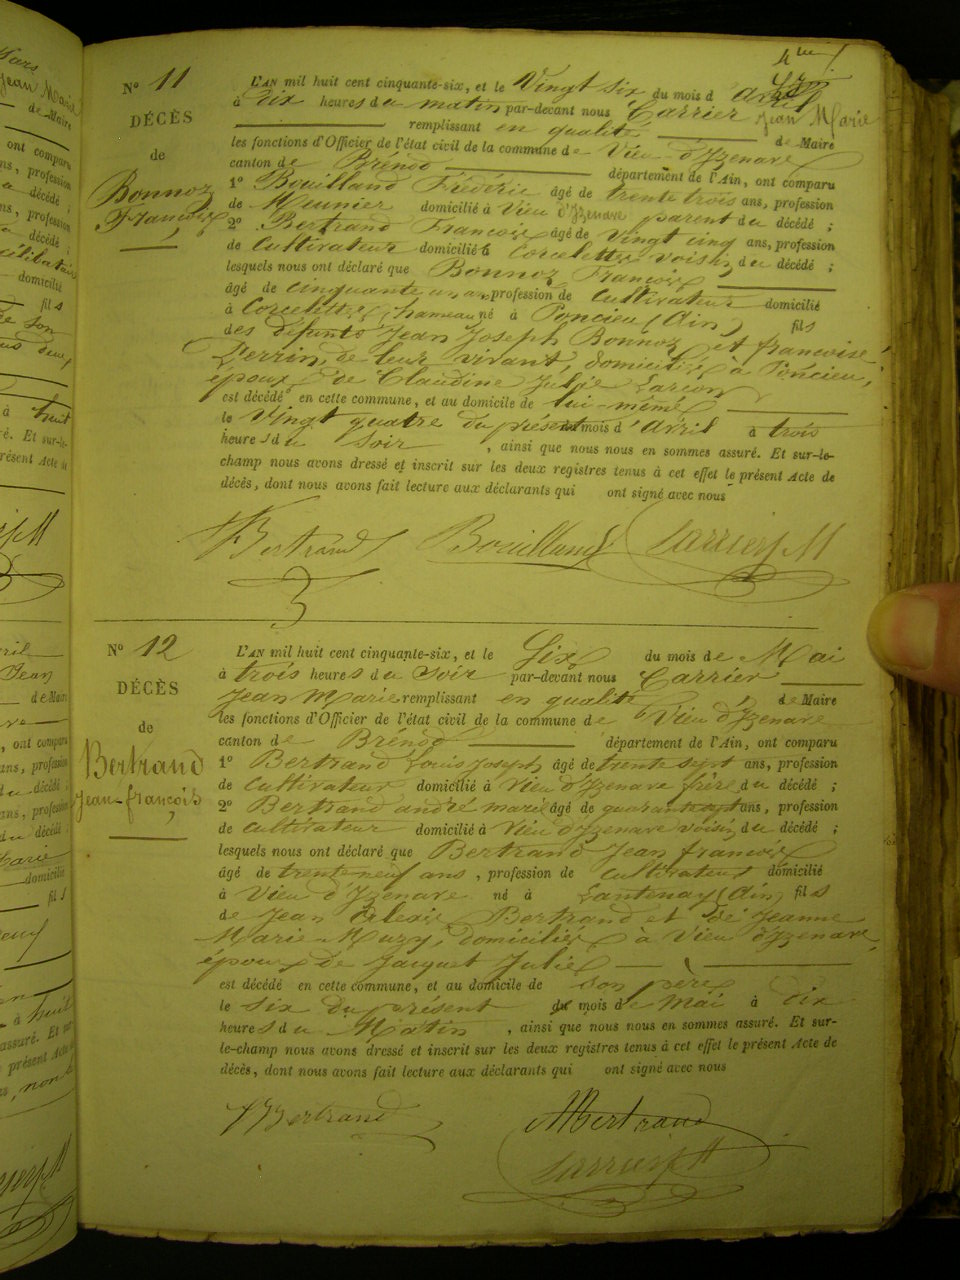 Nº 11
DÉCÈS
de
Bonnoz
François
L'AN mil huit cent cinquante-six, et le Vingt six du mois d'Avril
à dix heures du matin par-devant nous Carrier Jean Marie
remplissant en qualité de Maire
les fonctions d'Officier de l'état civil de la commune de Vieu d'Yzenave
canton de Brénod département de l'Ain, ont comparu
1º Bouilland Frédéric âgé de trente trois ans, profession
de Meunier domicilié à Vieu d'Yzenave parent du décédé ;
2º Bertrand François âgé de Vingt cinq ans, profession
de Cultivateur domicilié à Corcelette voisin du décédé ;
lesquels nous ont déclaré que Bonnoz François
âgé de cinquante un ans profession de Cultivateur domicilié
à Corcelette, hameau né à Poncieu (Ain) fils
des défunts Jean Joseph Bonnoz et françoise
Perrin, de leur vivant, domiciliés à Poncieu,
époux de Claudine Julie Larçon
est décédé en cette commune, et au domicile de lui-même
le Vingt quatre du présent mois d'Avril à trois
heures du Soir, ainsi que nous nous en sommes assuré. Et sur-le-
champ nous avons dressé et inscrit sur les deux registres tenus à cet effet le présent Acte de
décès, dont nous avons fait lecture aux déclarants qui ont signé avec nous
Bertrand Bouilland Carrier J M
Nº 12
DÉCÈS
de
Bertrand
Jean-françois
L'AN mil huit cent cinquante-six, et le Six du mois de Mai
à trois heures du Soir par-devant nous Carrier
Jean Marie remplissant en qualité de Maire
les fonctions d'Officier de l'état civil de la commune de Vieu d'Yzenave
canton de Brénod département de l'Ain, ont comparu
1º Bertrand Louis Joseph âgé de trente sept ans, profession
de Cultivateur domicilié à Vieu d'Yzenave frère du décédé ;
2º Bertrand andré marie âgé de quarante sept ans, profession
de Cultivateur domicilié à Vieu d'Yzenave voisin du décédé ;
lesquels nous ont déclaré que Bertrand Jean françois
âgé de trente neuf ans, profession de Cultivateur domicilié
à Vieu d'Yzenave né à Lantenay (Ain) fils
de Jean Bertrand et de Jeanne
Marie Muzy, domiciliés à Vieu d'Yzenave,
époux de Jacquet Julie
est décédé en cette commune, et au domicile de son père
le six du présent du mois de Mai à dix
heures du Matin, ainsi que nous nous en sommes assuré. Et sur-
le-champ nous avons dressé et inscrit sur les deux registres tenus à cet effet le présent Acte de
décès, dont nous avons fait lecture aux déclarants qui ont signé avec nous
Bertrand AMBertrand
Carrier J M